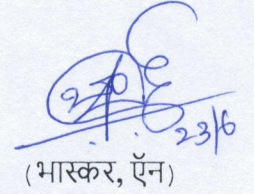 23/6
(भास्कर, ऍन)